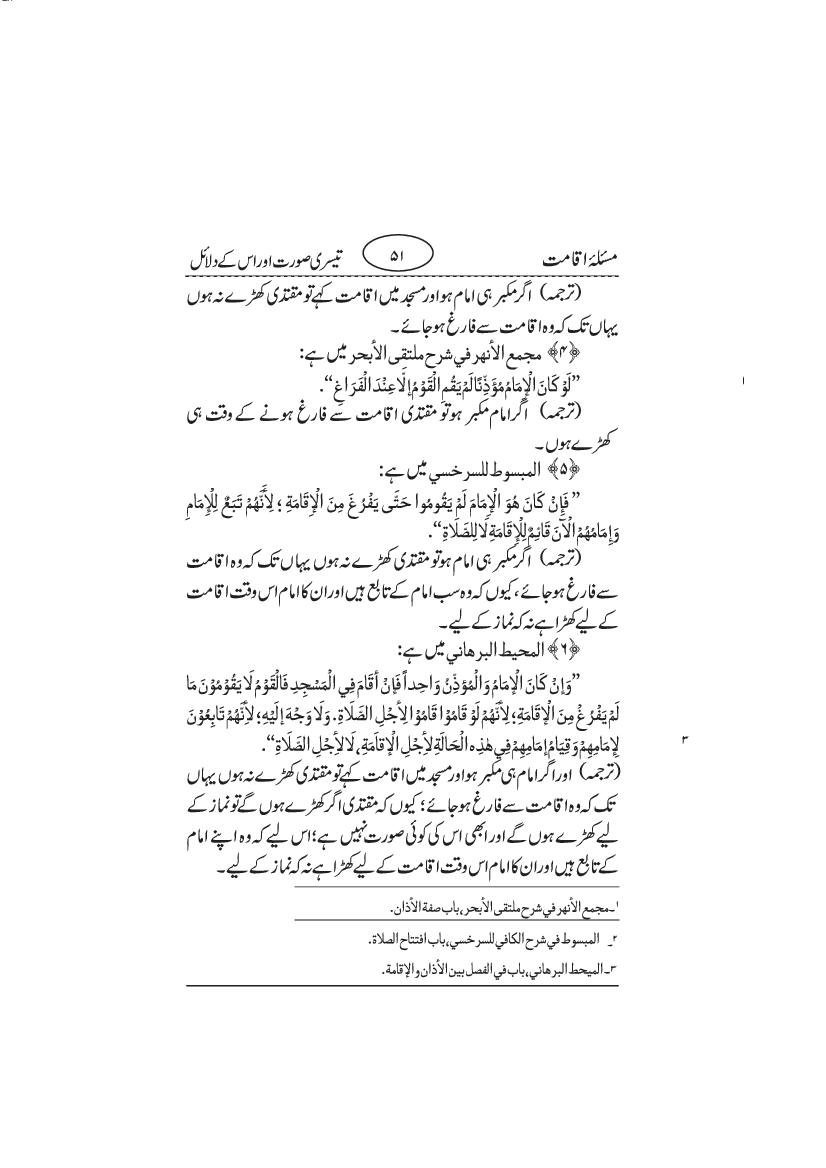 مسئلۂ اقامت ۵۱ تیسری صورت اور اس کے دلائل
(ترجمہ) اگر مکبر ہی امام ہو اور مسجد میں اقامت کہے تو مقتدی کھڑے نہ ہوں
یہاں تک کہ وہ اقامت سے فارغ ہو جائے۔
﴿۴﴾ مجمع الأنهر في شرح ملتقى الأبحر میں ہے:
”لَوْ كَانَ الْإِمَامُ مُؤَذِّنًا لَمْ يَقُمِ الْقَوْمُ إلَّا عِنْدَ الْفَرَاغِ“.
(ترجمہ) اگر امام مکبر ہو تو مقتدی اقامت سے فارغ ہونے کے وقت ہی
کھڑے ہوں۔
﴿۵﴾ المبسوط للسرخسي میں ہے:
” فَإِنْ كَانَ هُوَ الْإِمَامَ لَمْ يَقُومُوا حَتَّى يَفْرُغَ مِنَ الْإِقَامَةِ ؛ لِأَنَّهُمْ تَبَعٌ لِلْإِمَامِ
وَإِمَامُهُمْ الْآنَ قَائِمٌ لِلْإِقَامَةِ لَا لِلصَّلَاةِ“.
(ترجمہ) اگر مکبر ہی امام ہو تو مقتدی کھڑے نہ ہوں یہاں تک کہ وہ اقامت
سے فارغ ہو جائے، کیوں کہ وہ سب امام کے تابع ہیں اور ان کا امام اس وقت اقامت
کے لیے کھڑا ہے نہ کہ نماز کے لیے۔
﴿۶﴾ المحيط البرهاني میں ہے:
”وَإِنْ كَانَ الْإِمَامُ وَالْمُؤَذِّنُ وَاحِداً فَإنْ أقَامَ فِي الْمَسْجِدِ فَالْقَوْمُ لَا يَقُوْمُوْنَ مَا
لَمْ يَفْرُغْ مِنَ الْإِقَامَةِ؛ لِأَنَّهُمْ لَوْ قَامُوْا قَامُوْا لِأَجْلِ الصَّلَاةِ. وَلَا وَجْهَ إلَيْهِ؛ لِأَنَّهُمْ تَابِعُوْنَ
لِإمَامِهِمْ وَقِيَامُ إمَامِهِمْ فِي هٰذِهِ الْحَالَةِ لِأَجْلِ الْإقَامَةِ، لَا لِأَجْلِ الصَّلَاةِ“.
۳
(ترجمہ) اور اگر امام ہی مکبر ہو اور مسجد میں اقامت کہے تو مقتدی کھڑے نہ ہوں یہاں
تک کہ وہ اقامت سے فارغ ہو جائے؛ کیوں کہ مقتدی اگر کھڑے ہوں گے تو نماز کے
لیے کھڑے ہوں گے اور ابھی اس کی کوئی صورت نہیں ہے؛ اس لیے کہ وہ اپنے امام
کے تابع ہیں اور ان کا امام اس وقت اقامت کے لیے کھڑا ہے نہ کہ نماز کے لیے۔
۱۔مجمع الأنهر في شرح ملتقى الأبحر، باب صفة الأذان.
۲۔ المبسوط في شرح الكافي للسرخسي، باب افتتاح الصلاة.
۳۔الميحط البرهاني، باب في الفصل بين الأذان والإقامة.